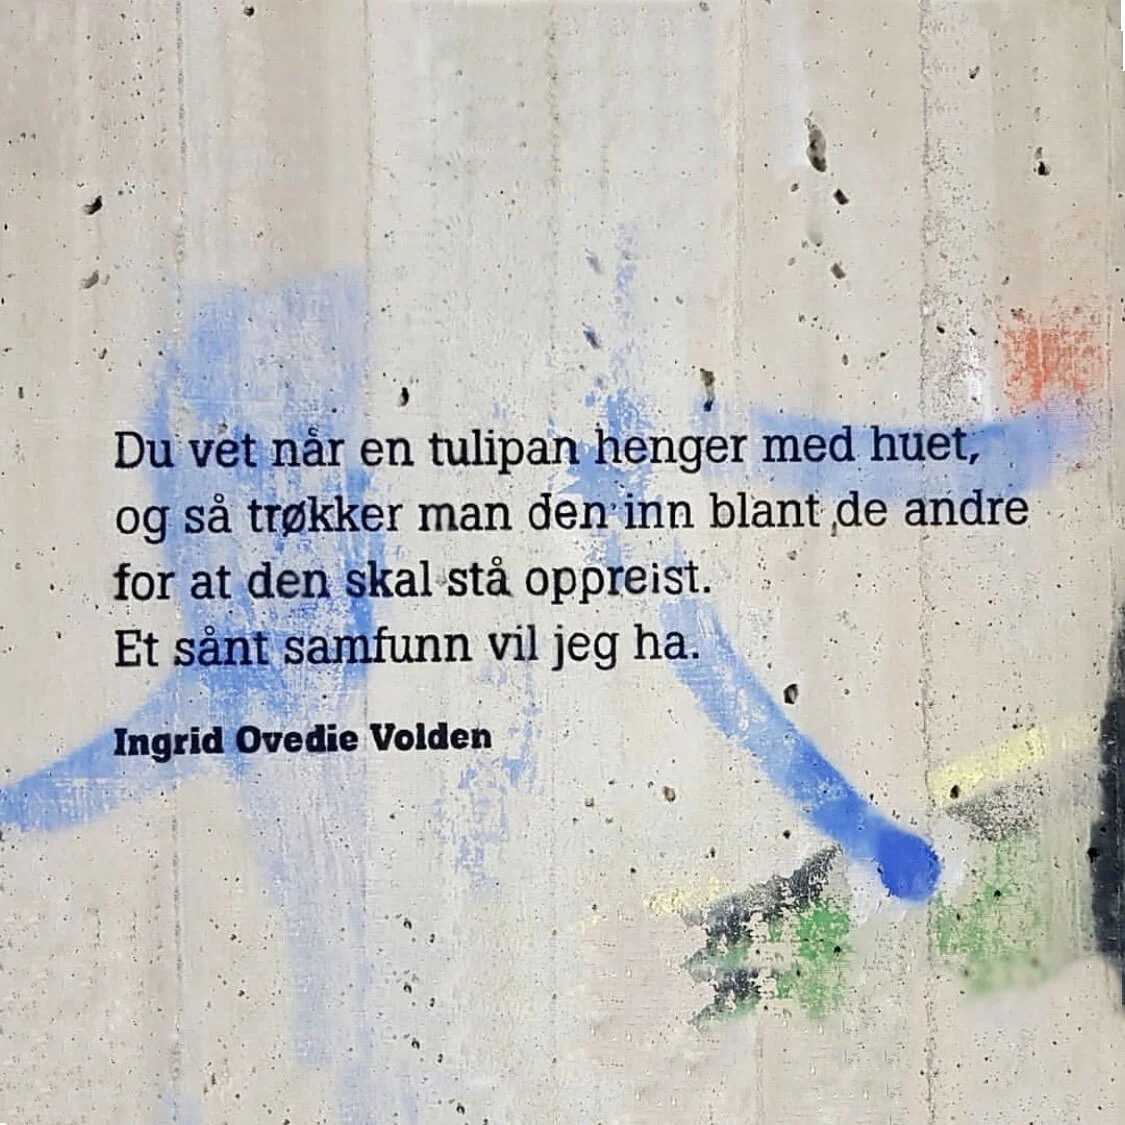 Du vet når en tulipan henger med huet,
og så trøkker man den inn blant de andre
for at den skal stå oppreist.
Et sånt samfunn vil jeg ha.
Ingrid Ovedie Volden